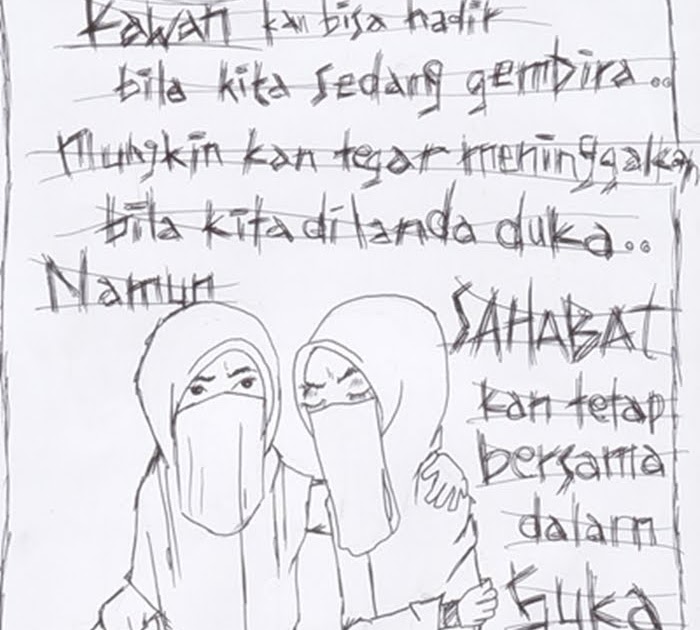 Kawan kan bisa hadir
bila kita sedang gembira..
Mungkin kan tegar meninggalkan
bila kita dilanda duka..
Namun
SAHABAT
kan tetap
bersama
dalam
Suka